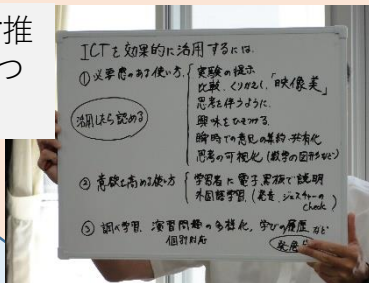 推
つ
ICTを効果的に活用するには、
①必要感のある使い方
実験の提示
比較、くりかえし、「映像美」
思考を伴うように、
興味をひきつける
瞬時での意見の集約・共有化
思考の可視化(数学の図形など)
活用したら認める
②意欲を高める使い方
学習者に電子黒板で説明
外国語学習、(発音、ジェスチャーのcheck)
③調べ学習、演習問題の多様化、学びの履歴 など
個別対応